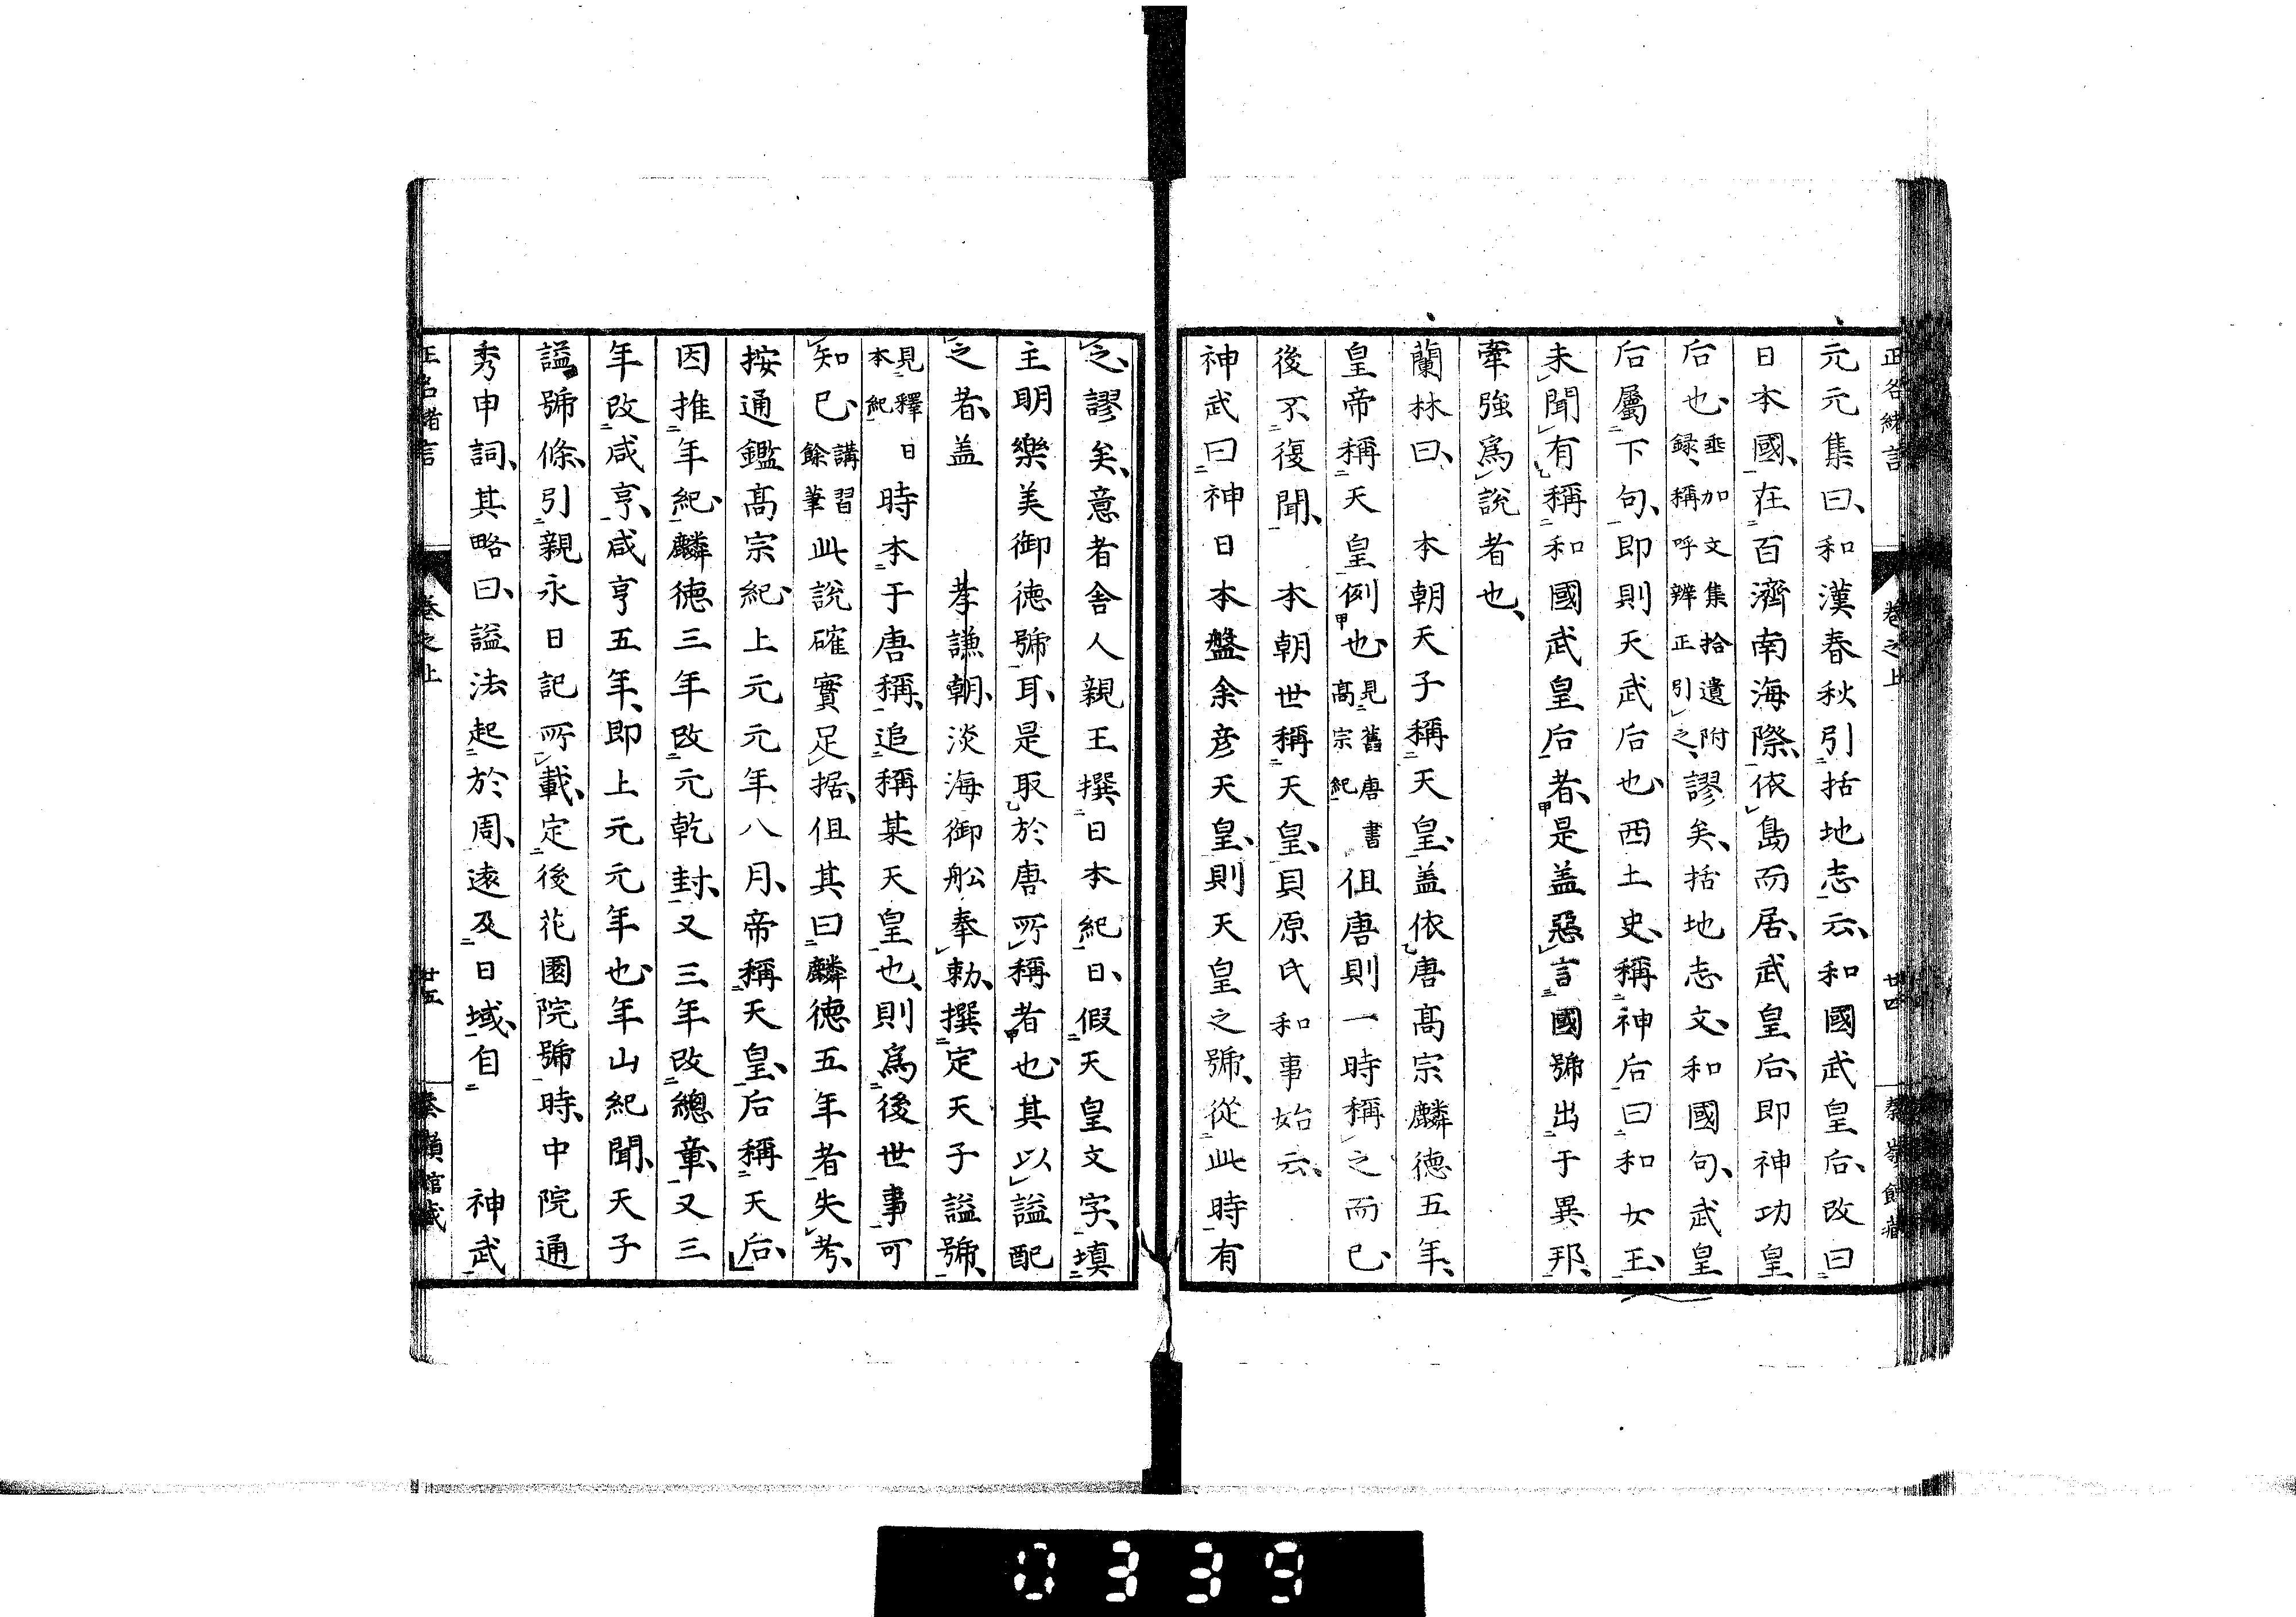 正名緒言　卷之上　廿四
元元集曰、和漢春秋引括地志云、和國武皇后、改曰
日本國、在百濟南海際、依島而居、武皇后、即神功皇
后也、垂加文集拾遺附録、稱呼辨正引之、謬矣、括地志文、和國句、武皇
后屬下句、即則天武后也、西土史、稱神后曰和女王、
未聞有稱和國武皇后者、是盖惡言國號出于異邦、
牽強爲說者也、
蘭林曰、　本朝天子稱天皇、盖依唐高宗麟德五年、
皇帝稱天皇例也、見舊唐書高宗紀　但唐則一時稱之而已
後不復聞、　本朝世稱天皇、貝原氏和事始云、
神武曰神日本盤余彦天皇、則天皇之號、從此時有
之、謬矣、意者舎人親王撰日本紀日、假天皇文字、填
主明樂美御德號耳、是取於唐所稱者也、其以謚配
之者、盖　孝謙朝、淡海御舩奉勅、撰定天子謚號、
見釋日本紀　時本于唐稱、追稱某天皇也、則爲後世事可
知已、講習餘筆　此說確實足據、但其曰麟德五年者失考、
按通鑑高宗紀、上元元年八月、帝稱天皇、后稱天后、
因推年紀、麟德三年改元乾封、又三年改總章、又三
年改咸亨、咸亨五年、即上元元年也、年山紀聞、天子
謚號條、引親永日記所載、定後花園院號時、中院通
秀申詞、其略曰、謚法起於周、遠及日域、自　神武
正名緒言　卷之上　廿五